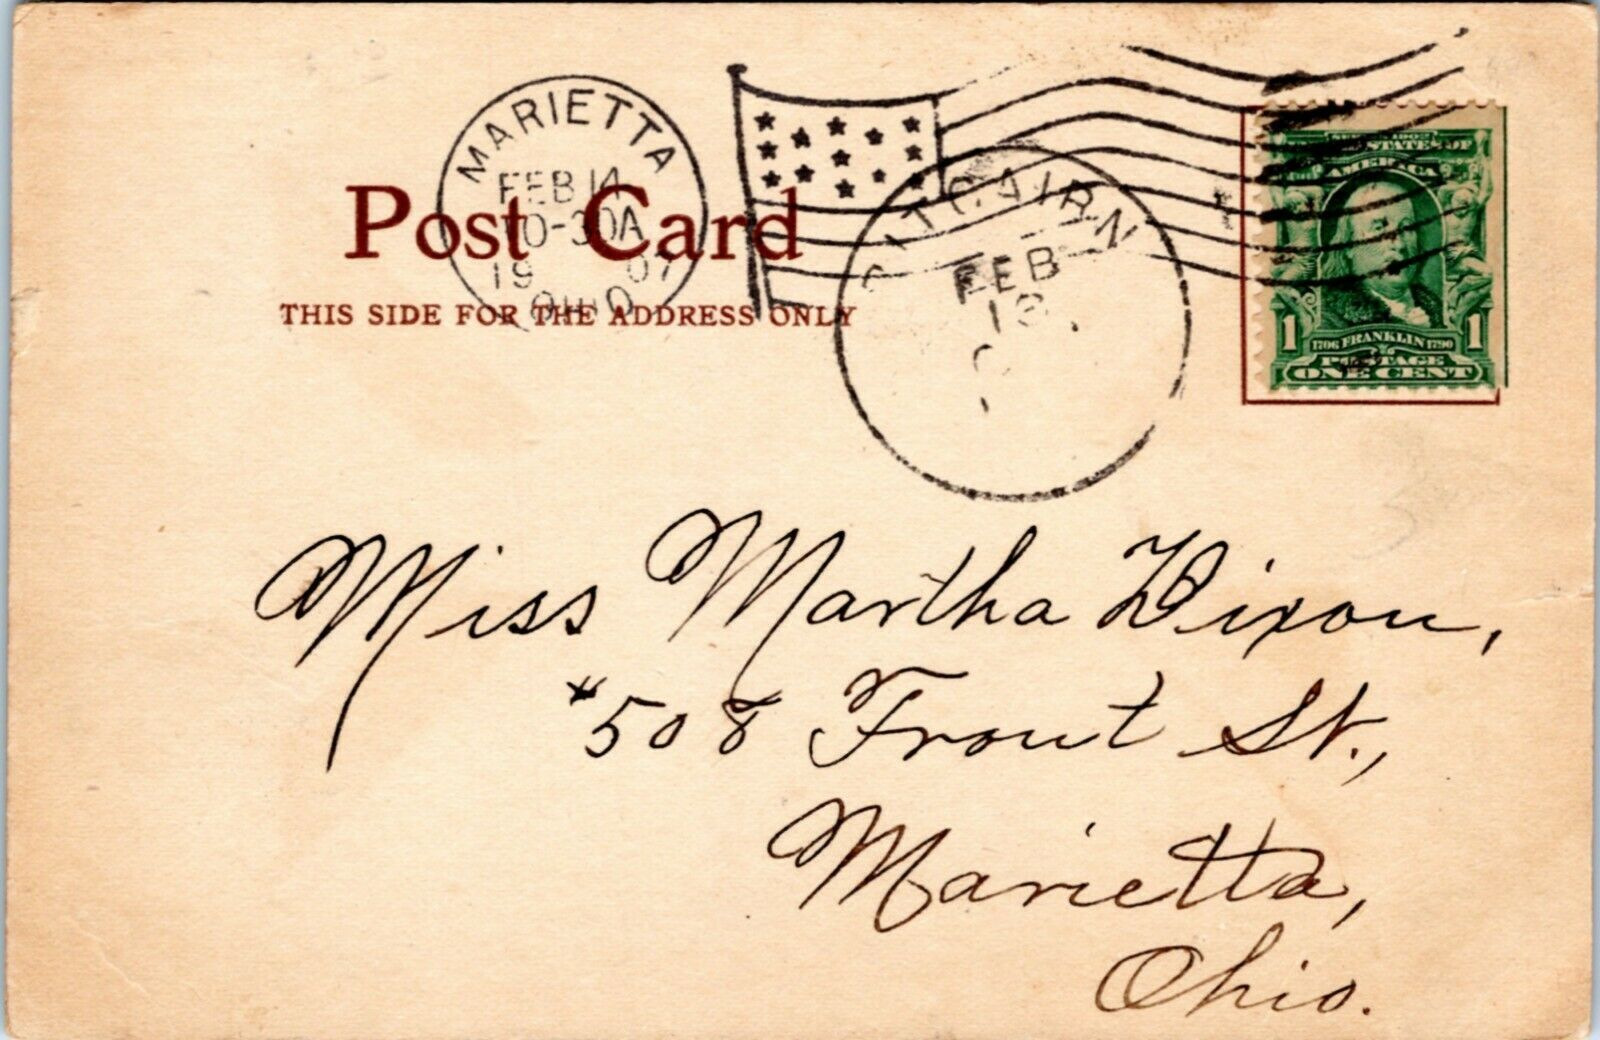 MARIETTA
FEB 14
10-30A
19 07
OHIO
PITCAIRN
FEB
Post Card
THIS SIDE FOR THE ADDRESS ONLY
SERIES 1902
UNITED STATES OF
AMERICA
1 1
1706 FRANKLIN 1790
POSTAGE
ONE CENT
Miss Martha Dixon,
#508 Front St.,
Marietta,
Ohio.